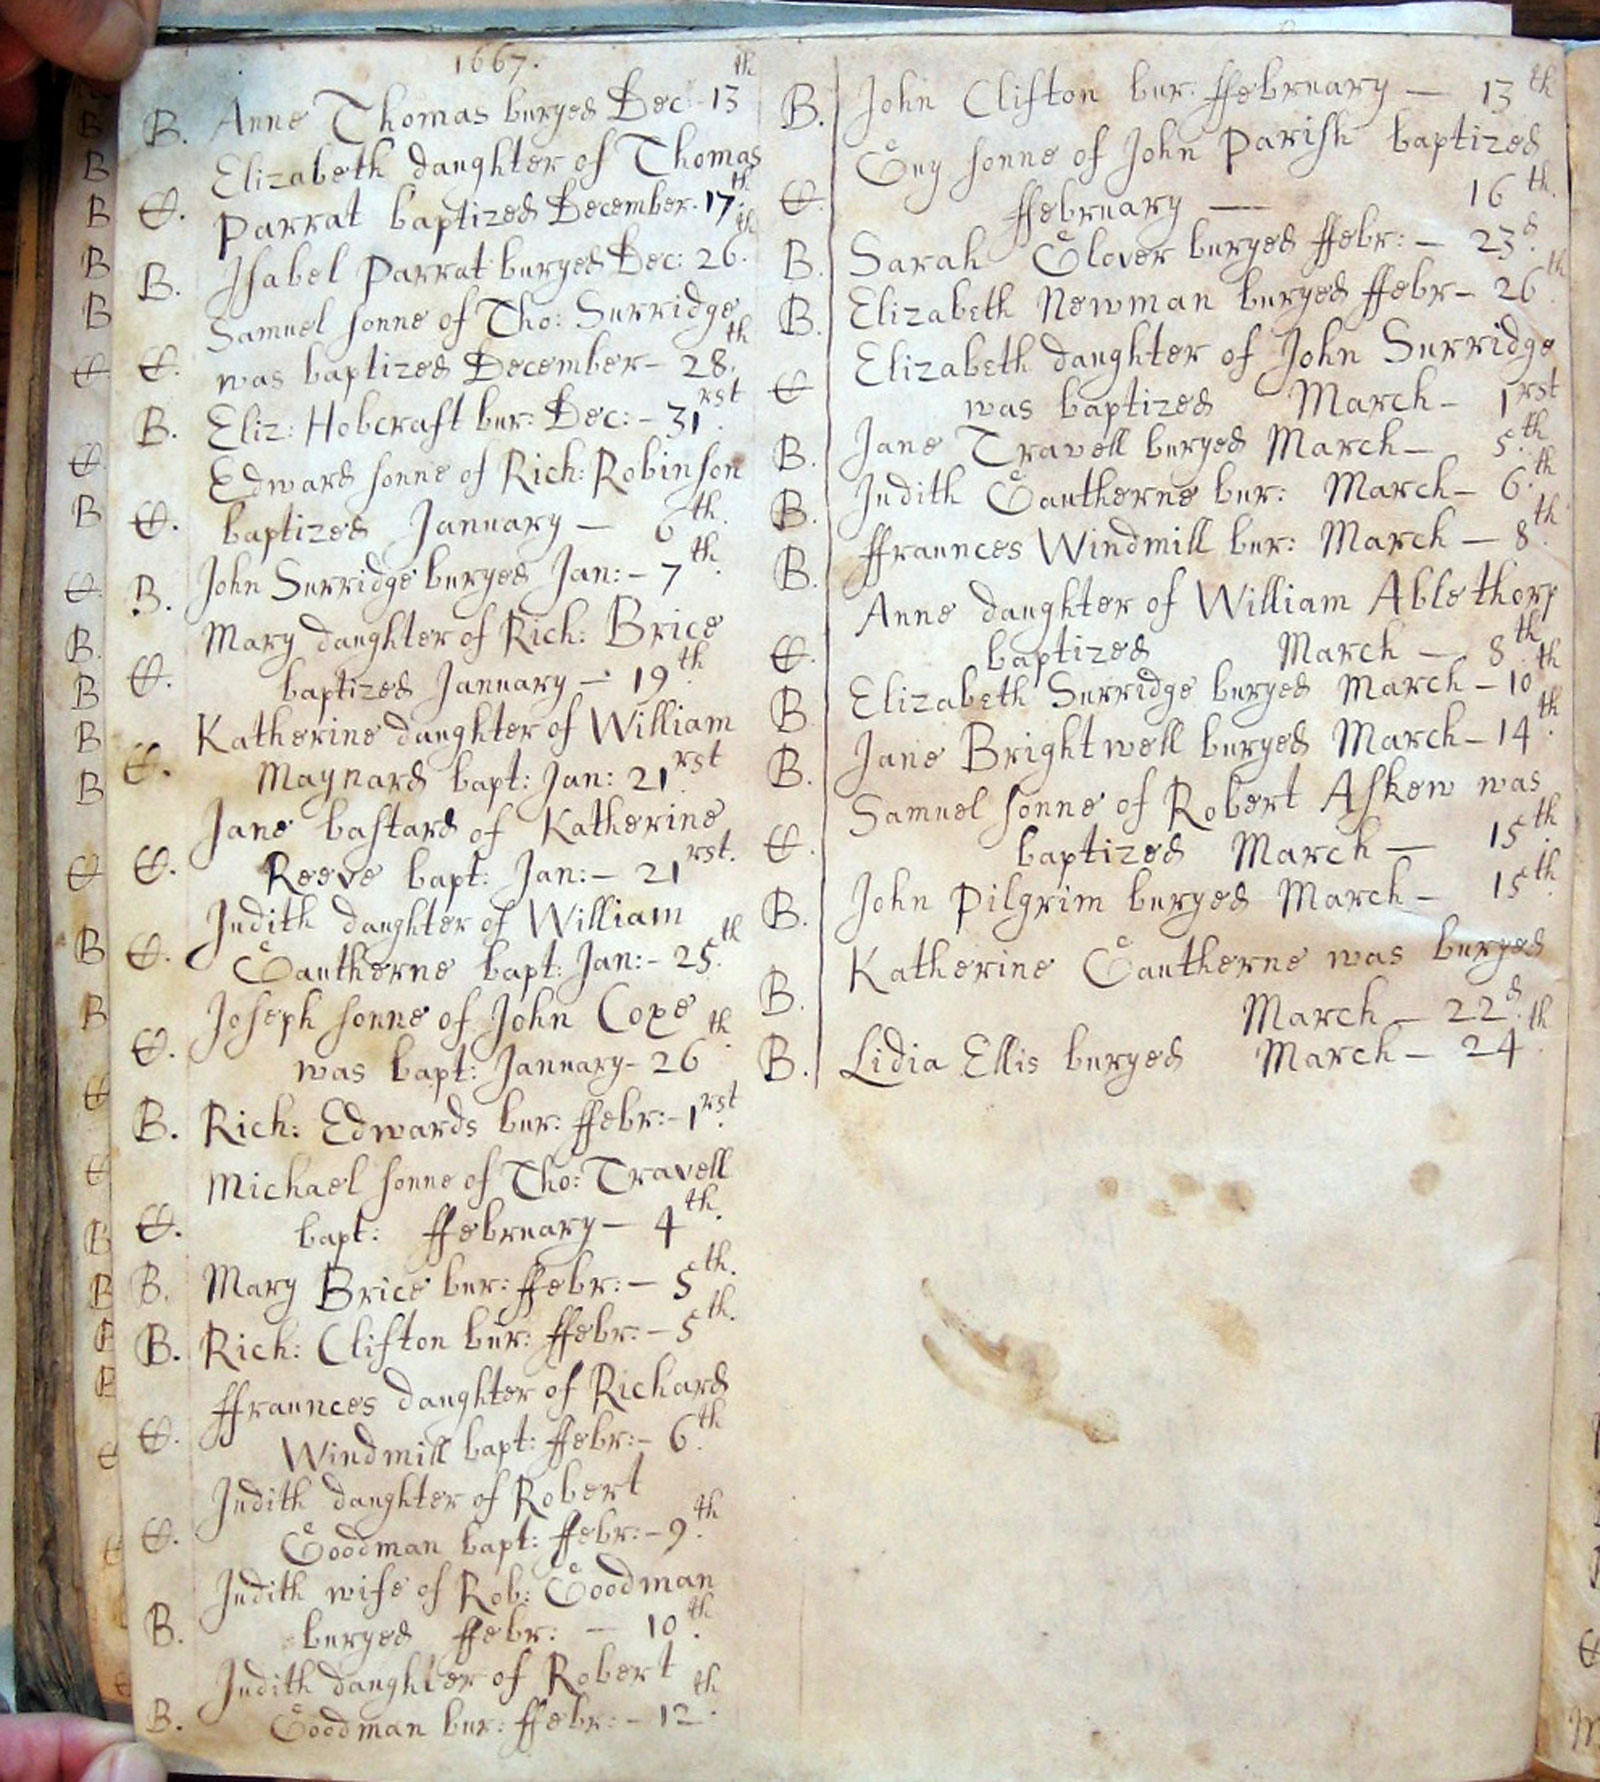 1667.
B. Anne Thomas buryed Dec: 13th
Elizabeth daughter of Thomas
C. Parrat baptized December. 17th.
B. Isabel Parrat buryed Dec: 26th.
Samuel sonne of Tho: Surridge
C. was baptized December – 28th.
B. Eliz: Hobcraft bur: Dec: – 31rst.
Edward sonne of Rich: Robinson
C. baptized January — 6th.
B. John Surridge buryed Jan: – 7th.
Mary daughter of Rich: Brice
C. baptized January – 19th.
Katherine daughter of William
C. Maynard bapt: Jan: 21rst.
Jane bastard of Katherine
C. Reeve bapt: Jan: – 21rst.
Judith daughter of William
C. Gautherne bapt: Jan: – 25th.
Joseph sonne of John Coxe
C. was bapt: January – 26th.
B. Rich: Edwards bur: ffebr: – 1rst.
Michael sonne of Tho: Travell
C. bapt: ffebruary – 4th.
B. Mary Brice bur: ffebr: – 5th.
B. Rich: Clifton bur: ffebr: – 5th.
ffraunces daughter of Richard
C. Windmill bapt: ffebr: – 6th.
Judith daughter of Robert
C. Goodman bapt: ffebr: – 9th.
Judith wife of Rob: Goodman
B. buryed ffebr: — 10th.
Judith daughter of Robert
B. Goodman bur: ffebr: – 12th.
B. John Clifton bur: ffebruary — 13th
Guy sonne of John Parish baptized
C. ffebruary — 16th.
B. Sarah Glover buryed ffebr: – 23d.
B. Elizabeth Newman buryed ffebr – 26th.
Elizabeth daughter of John Surridge
C was baptized March – 1rst
B. Jane Travell buryed March – 5th.
B. Judith Gautherne bur: March – 6th.
B. ffraunces Windmill bur: March – 8th.
Anne daughter of William Ablethorp
C. baptized March — 8th.
B Elizabeth Surridge buryed March – 10th
B. Jane Brightwell buryed March – 14th.
Samuel sonne of Robert Askew was
C. baptized March — 15th.
B. John Pilgrim buryed March – 15th.
Katherine Gautherne was buryed
B. March – 22d.
B. Lidia Ellis buryed March – 24th.